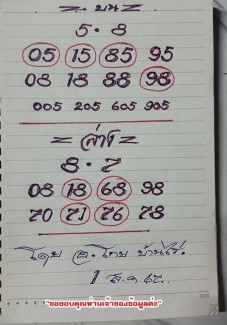 = บน =
5 · 8
05 15 85 95
08 18 88 98
005 205 605 905
= ล่าง =
8 · 7
08 18 68 98
70 71 76 78
โดย อ. ไทย บ้านไร่.
1 ส.ค 67..
"ขอขอบคุณท่านเจ้าของข้อมูลค่ะ"